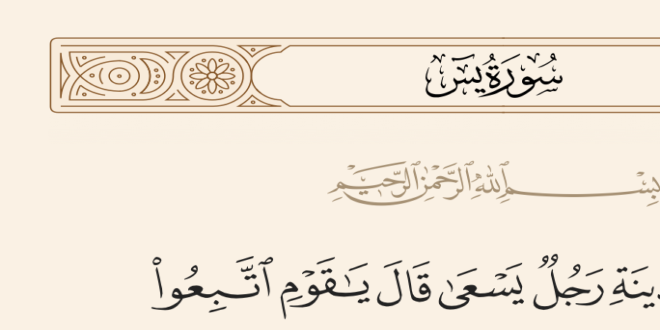 سُورَةُ يسٓ
بِسْمِ ٱللَّهِ ٱلرَّحْمَٰنِ ٱلرَّحِيمِ
رَجُلٌ يَسْعَىٰ قَالَ يَـٰقَوْمِ ٱتَّبِعُوا۟